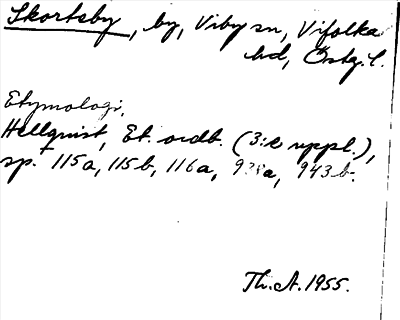 Skortsby, by, Viby sn, Vifolka
hd, Östg. l.
Etymologi.
Hellquist, Et. ordb. (3:e uppl.),
sp. 115a, 115b, 116a, 943b.
Th. A. 1955.